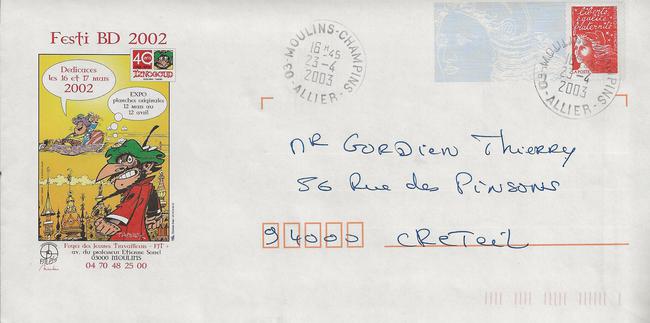 Festi BD 2002
Dedicaces
les 16 et 17 mars
2002
40
IZNOGOUD
EXPO
planches originales
12 mars au
12 avril
TABARY
Foyer des Jeunes Travailleurs - FJT -
av. du professeur Etienne Sorel
03000 MOULINS
04 70 48 25 00
MOULINS-CHAMPINS
16H45
23-4
2003
03-ALLIER
Liberté
égalité
fraternité
LA POSTE
MOULINS-CHAMPINS
23-4
2003
03-ALLIER
MR GORDIEN Thierry
56 Rue des PINSONS
94000 CRETEIL